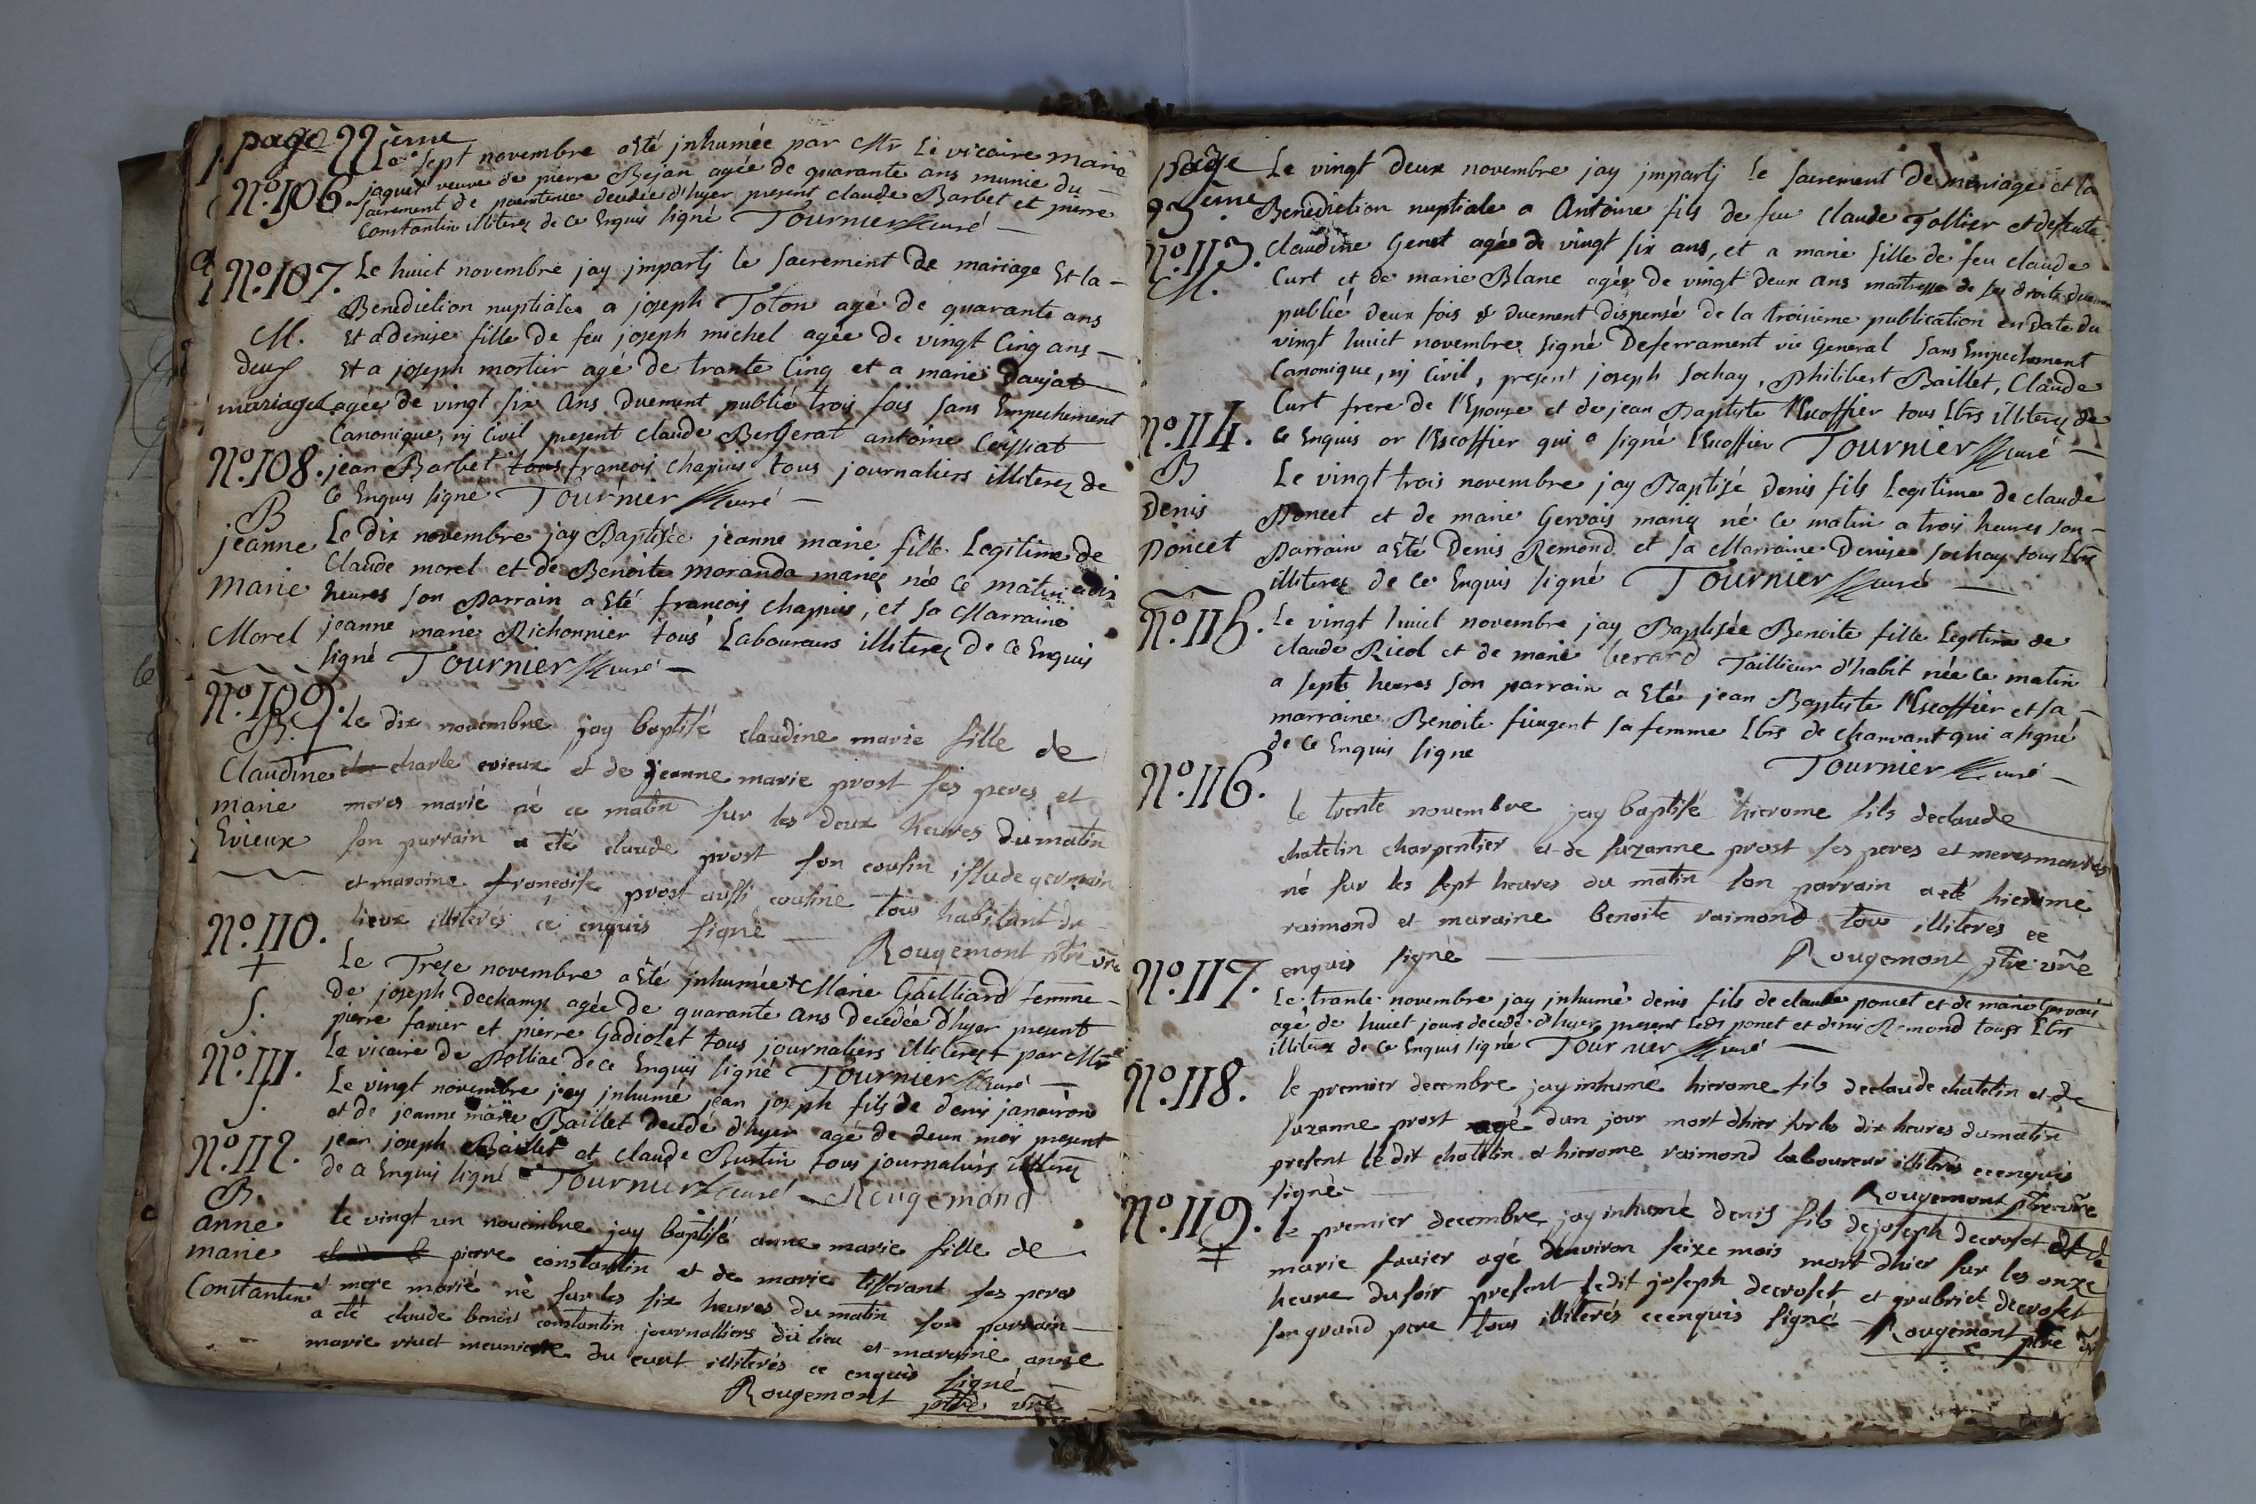 page 22ieme
Le sept novembre a Eté jnhumée par Mr Le vicaire marie
N.º 106. jaquet veuve de pierre Bejan agée de quarante ans munie du
sacrement de penitence decedée d'hyer present claude Barbet et pierre
Constantin illiterez de ce Enquis signé Tournier curé
N.º 107. Le huict novembre jay jmpartj le sacrement de mariage Et la
Benediction nuptiale a joseph Toton agé de quarante ans
M. Et a denise fille de feu joseph michel agée de vingt Cinq ans
deux Et a joseph mortier agé de trante Cinq et a marie daujat
mariages agée de vingt six ans duement publié trois fois sans Empechement
Canonique, nj Civil present claude Bergerat antoine
N.º 108. jean Barbet francois chapuis tous journaliers illiterez de
ce Enquis signé Tournier curé
B Le dix novembre jay Baptisée jeanne marie fille Legitime de
jeanne Claude morel et de Benoite moranda mariez née ce matin a dix
marie heures son Parrain a Eté francois chapuis, et sa Marraine
Morel jeanne marie Richonnier tous Laboureurs illiterez de ce Enquis
signé Tournier curé
N.º 109.
B. Le dix novembre jay baptisé claudine marie fille de
Claudine charle evieux et de jeanne marie prost ses peres et
marie meres marié né ce matin sur les deux heures du matin
Evieux son parrain a eté claude prost son cousin issu de germain
et maraine francoise prost aussi cousine tous habitant du
lieux illiterés ce enquis signé Rougemont ptre vre
N.º 110.
Le Treze novembre a Eté jnhumée Marie Gailliard femme
de joseph dechamp agée de quarante ans decedée d'hyer present
S. pierre favier et pierre Gadiolet tous journaliers illiterez par Mr
Le vicaire de Polliac de ce Enquis signé Tournier curé
N.º 111. Le vingt novembre jay jnhumé jean joseph fils de denis
S. et de jeanne marie Baillet decedé d'hyer agé de deux mois present
jean joseph Baillet et claude Burtin tous journaliers illiterez
N.º 112. de ce Enquis signé Tournier curé Rougemond
B.
anne le vingt un novembre jay baptisé anne marie fille de
marie pierre constantin et de marie tisserant ses peres
Constantin et mere marié né sur les six heures du matin son parrain
a eté claude benoit constantin journalliers du lieu et maraine anne
marie vruet meuniere du curt illiterés ce enquis signé
Rougemont ptre vre
page 23eme
Le vingt deux novembre jay jmpartj le sacrement de mariage et la
Benediction nuptiale a Antoine fils de feu Claude Tollier et defunte
N.º 113. Claudine Genet agée de vingt six ans, et a marie fille de feu claude
M. Curt et de marie Blanc agée de vingt deux ans maitresse de ses droits duement
publié deux fois & duement dispensé de la troisieme publication en date du
vingt huict novembre signé Deferrament vic General sans Empechement
Canonique, nj Civil, present joseph sochay, Philibert Baillet, Claude
Curt frere de l'Epouse et de jean Baptiste l'Escoffier tous Lbrs illiterez de
N.º 114. ce Enquis or l'Escoffier qui a signé l'Escoffier Tournier curé
B Le vingt trois novembre jay Baptisé denis fils Legitime de claude
Denis Poncet et de marie Gervais mariez né ce matin a trois heures son
Poncet Parrain a Eté Denis Remond et sa Marraine Denise sochay tous Lbrs
illiterez de ce Enquis signé Tournier curé
N.º 115. Le vingt huict novembre jay Baptisée Benoite fille Legitime de
claude Ricol et de marie berard Taillieur d'habit née ce matin
a sept heures son parrain a Eté jean Baptiste l'Escoffier et sa
marraine Benoite fuugent sa femme Lbrs de chanvant qui a signé
de ce Enquis signe
Tournier curé
N.º 116.
le trente novembre jay baptisé hierome fils de claude
chatelin charpentier et de suzanne prost ses peres et meres mariés
né sur les sept heures du matin son parrain a eté hierome
raimond et maraine benoite raimond tous illiterés ce
enquis signé Rougemont ptre vre
N.º 117. Le trante novembre jay jnhumé denis fils de claude poncet et de marie Gervais
agé de huict jours decedé d'hyer present ledt poncet et denis Remond tous Lbrs
illiterez de ce Enquis signé Tournier curé
N.º 118. le premier decembre jay inhumé hierome fils de claude chatelin et de
suzanne prost agé dun jour mort dhier sur les dix heures du matin
present le dit chatelin et hierome raimond laboureur illiterés ce enquis
signé Rougemont ptre vre
N.º 119. le premier decembre jay inhumé denis fils de joseph decroset et de
marie favier agé denviron seize mois mort dhier sur les onze
heure du soir present ledit joseph decroset et grabriet decroset
son grand pere tous illiterés ce enquis signé Rougemont ptre vr